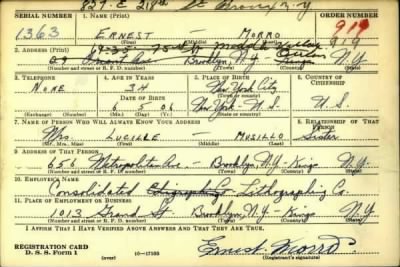 827-E 218th St Bronx N.Y
SERIAL NUMBER 1. NAME (Print) ORDER NUMBER
1363 ERNEST — MORRO 919
(First) (Middle) (Last)
2. ADDRESS (Print)
Ave. Brooklyn, N.Y. Kings N.Y.
(Number and street or R. F. D. number) (Town) (County) (State)
3. TELEPHONE 4. AGE IN YEARS 5. PLACE OF BIRTH 6. COUNTRY OF CITIZENSHIP
None 34 New York City
DATE OF BIRTH
5 06 New York - U.S. U.S.
(Exchange) (Number) (Mo.) (Day) (Yr.) (Town or county) (State or country)
7. NAME OF PERSON WHO WILL ALWAYS KNOW YOUR ADDRESS 8. RELATIONSHIP OF THAT PERSON
Mrs. Lucille Musillo Sister
(Mr., Mrs., Miss) (First) (Middle) (Last)
9. ADDRESS OF THAT PERSON
656 Metropolitan Ave. - Brooklyn, N.Y. - Kings N.Y.
(Number and street or R. F. D. number) (Town) (County) (State)
10. EMPLOYER'S NAME
Consolidated Lithographing Co.
11. PLACE OF EMPLOYMENT OR BUSINESS
1013 Grand St. Brooklyn, N.Y. - Kings N.Y.
(Number and street or R. F. D. number) (Town) (County) (State)
I AFFIRM THAT I HAVE VERIFIED ABOVE ANSWERS AND THAT THEY ARE TRUE.
REGISTRATION CARD
D. S. S. Form 1 (over) 16—17105 Ernest Morro
(Registrant's signature)